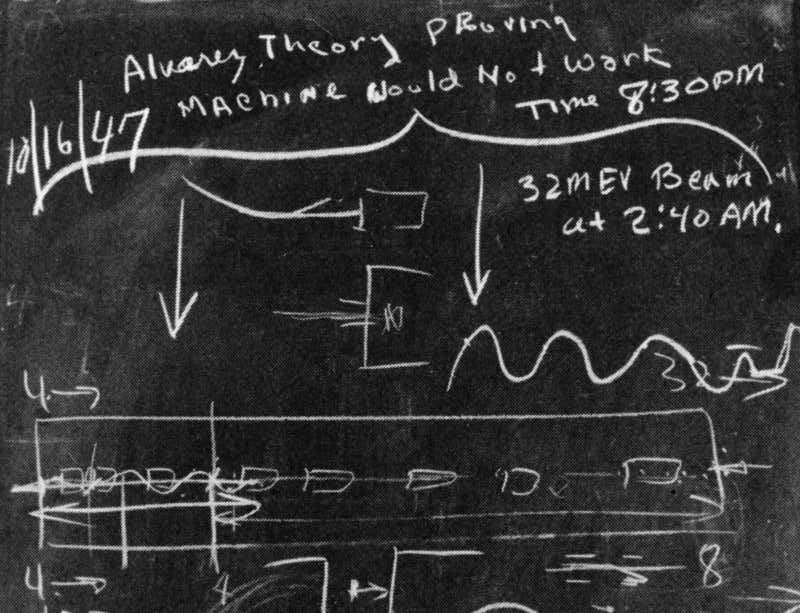 Alvarez Theory PRoving
MACHINE Would Not Work
Time 8:30PM
10/16/47
32MEV Beam
at 2:40 AM.
32
4
8
4
4